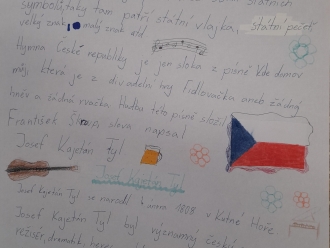 symboly, taky tam patří státní vlajka, státní pečeť,
velký znak, malý znak atd.
Hymna České republiky je jen sloka z písně Kde domov
můj, která je z divadelní hry Fidlovačka aneb žádný
hněv a žádná rvačka. Hudba této písně složil
František Škroup slova napsal
Josef Kajetán Tyl
Josef Kajetán Tyl
Josef Kajetán Tyl se narodil 4 února 1808 v Kutné Hoře
Josef Kajetán Tyl byl významný český
režisér, dramatik, herec